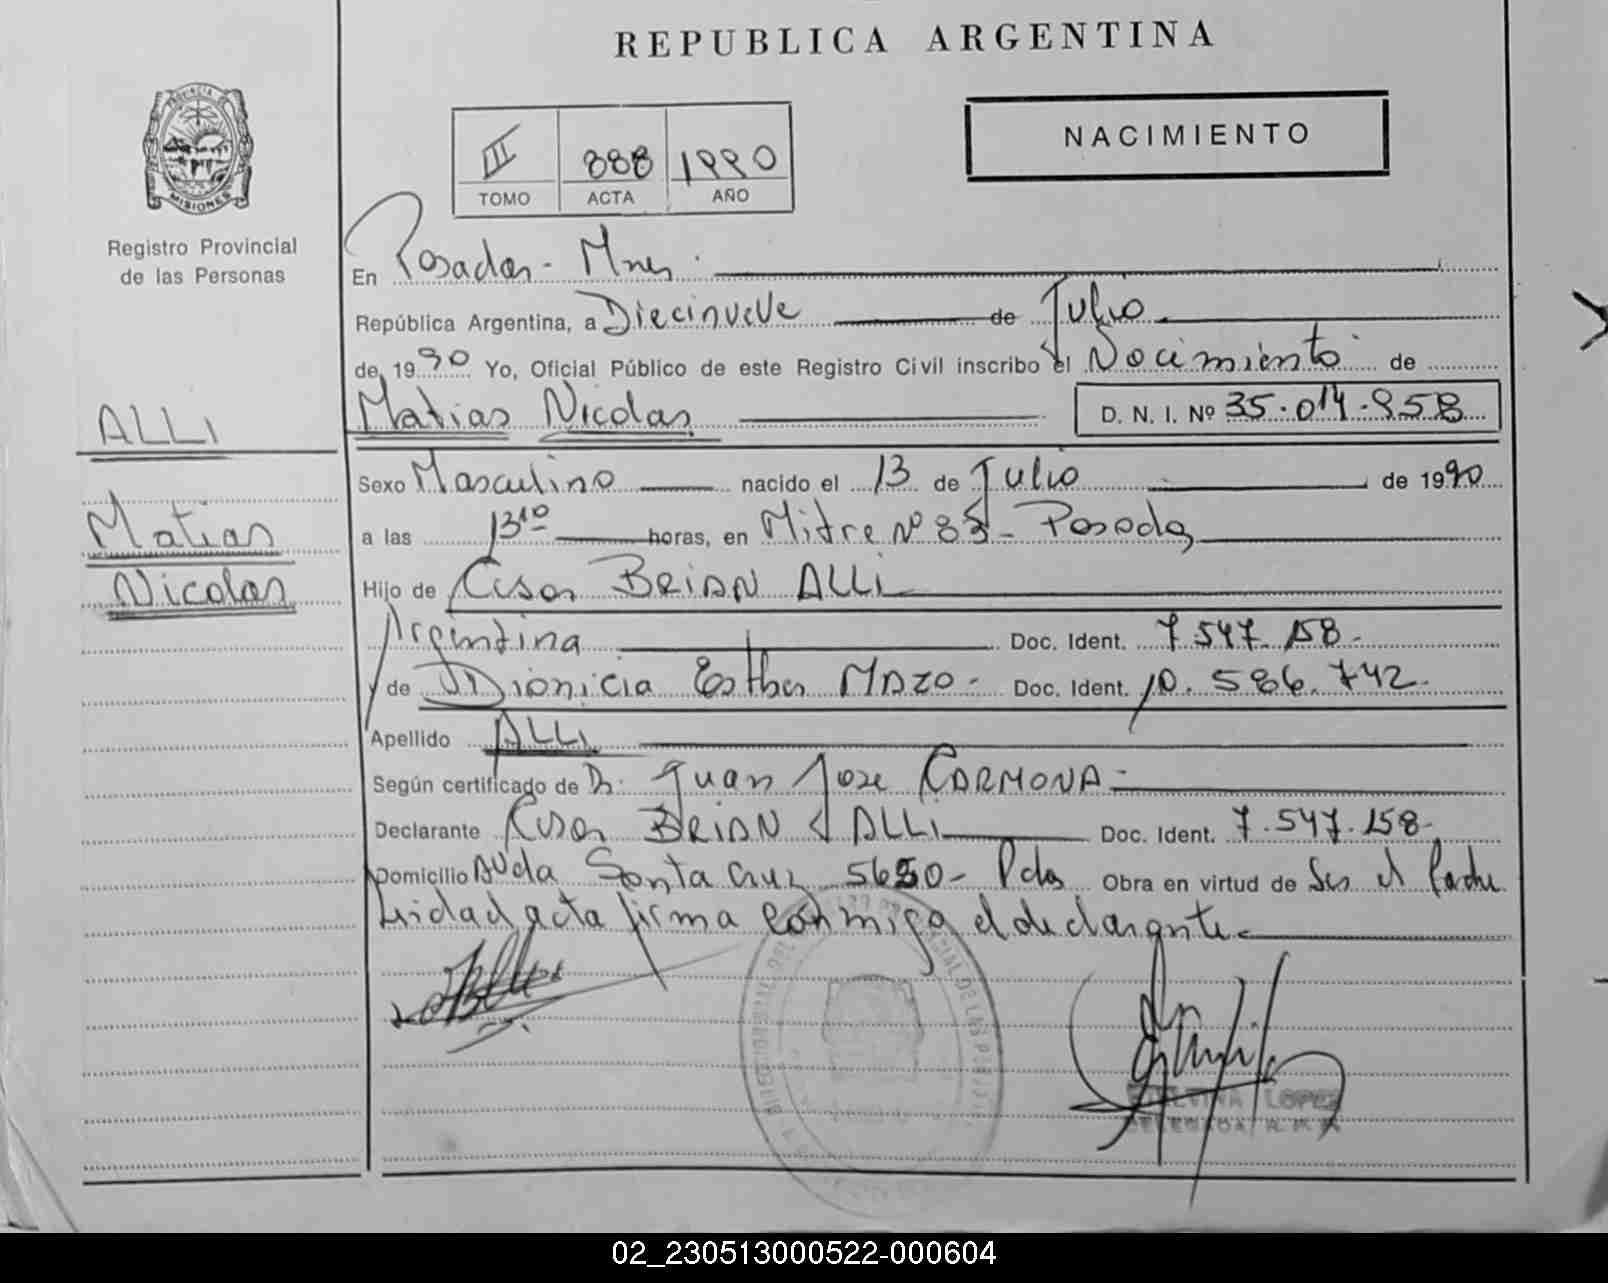 REPUBLICA ARGENTINA
PROVINCIA DE
MISIONES
Registro Provincial
de las Personas
III 888 1990
TOMO ACTA AÑO
NACIMIENTO
En Posadas - Mnes.
República Argentina, a Diecinueve de Julio
de 1990 Yo, Oficial Público de este Registro Civil inscribo el Nacimiento de
Matias Nicolas D. N. I. Nº 35.014.958
ALLI
Matias
Nicolas
Sexo Masculino nacido el 13 de Julio de 1990
a las 13 10 horas, en Mitre Nº 85 - Posadas
Hijo de Cesar BRIAN ALLI
Argentina Doc. Ident. 7.547.158-
y de Dionicia Esther MAZO - Doc. Ident. 10.586.742
Apellido ALLI
Según certificado de Dr. Juan Jose CARMONA -
Declarante Cesar BRIAN ALLI Doc. Ident. 7.547.158-
Domicilio Avda Santa Cruz 5680 - Pdas Obra en virtud de Ser el Padre
Leida el acta firma conmigo el declarante.
LOPEZ
DELEGADA
02_230513000522-000604